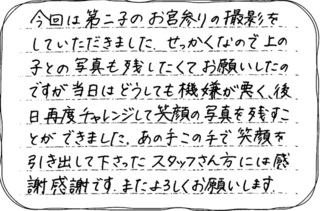 今回は第二子のお宮参りの撮影を
していただきました。せっかくなので上の
子との写真も残したくてお願いしたの
ですが当日はどうしても機嫌が悪く、後
日再度チャレンジして笑顔の写真を残すこ
とができました。あの手この手で笑顔を
引き出して下さったスタッフさん方には感
謝感謝です。またよろしくお願いします。